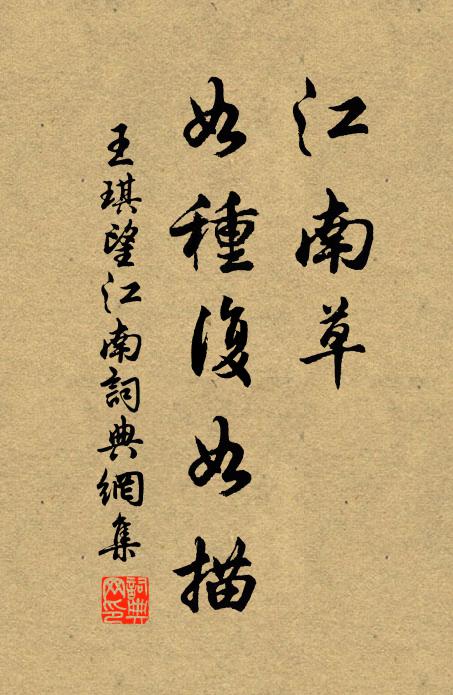 江南草
如種復如描
王琪望江南詞典網集
詞典網印